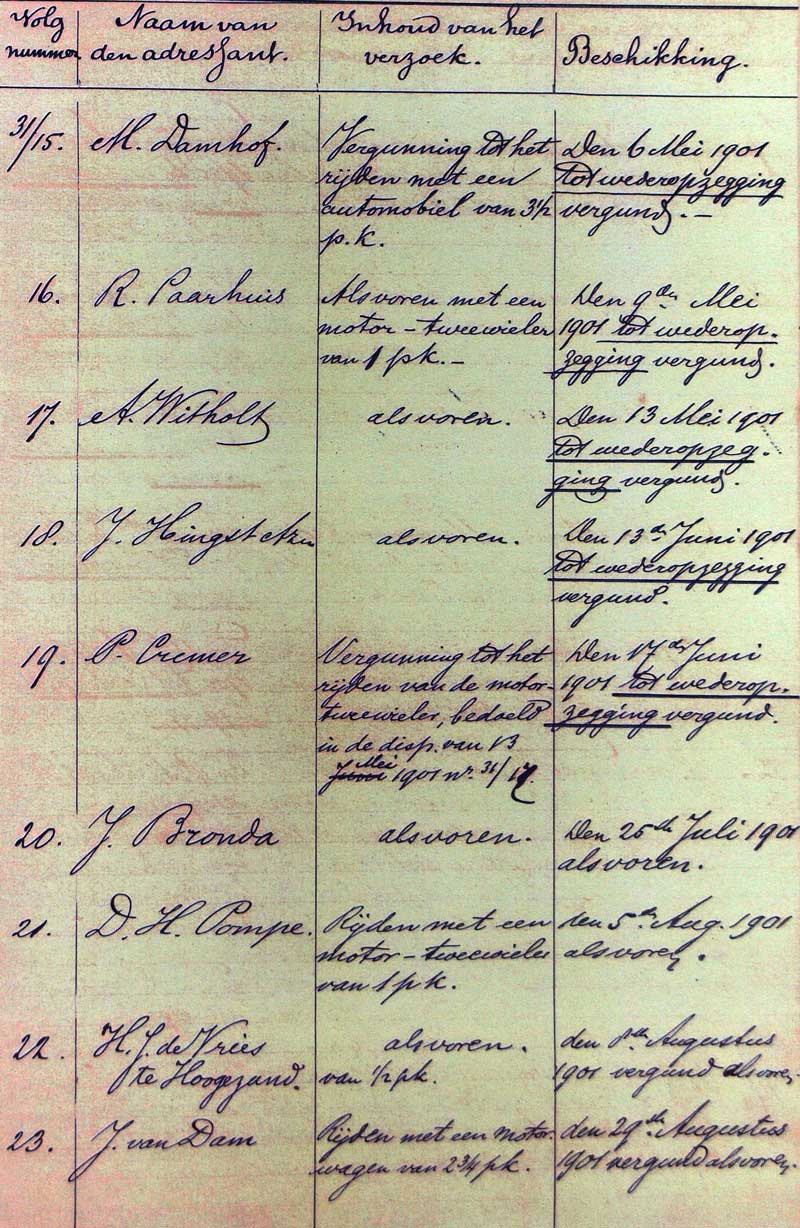 Volg nummer
Naam van den adressant.
Inhoud van het verzoek.
Beschikking.
31/15. M. Damhof.
Vergunning tot het
rijden met een
automobiel van 3½
p.k.
Den 6 Mei 1901
tot wederopzegging
vergund. —
16. R. Paarhuis
Als voren met een
motor - tweewieler
van 1 pk. -
Den 9den Mei
1901 tot wederop-
zegging vergund.
17. A. Witholt
als voren.
Den 13 Mei 1901
tot wederopzeg-
ging vergund.
18. J. Hingst Azn
als voren.
Den 13den Juni 1901
tot wederopzegging
vergund.
19. P. Cremer
Vergunning tot het
rijden van de motor-
tweewieler, bedoeld
in de disp. van 13
Juni Mei 1901 nr. 31/17.
Den 17den Juni
1901 tot wederop-
zegging vergund.
20. J. Bronda
als voren.
Den 25sten Juli 1901
als voren.
21. D. H. Pompe.
Rijden met een
motor - tweewieler
van 1 pk.
den 5den Aug. 1901
als voren.
22. H. J. de Vries
te Hoogezand.
als voren.
van ½ pk.
den 8sten Augustus
1901 vergund als voren.
23. J. van Dam
Rijden met een motor-
wagen van 2¾ pk.
den 29sten Augustus
1901 vergund als voren.